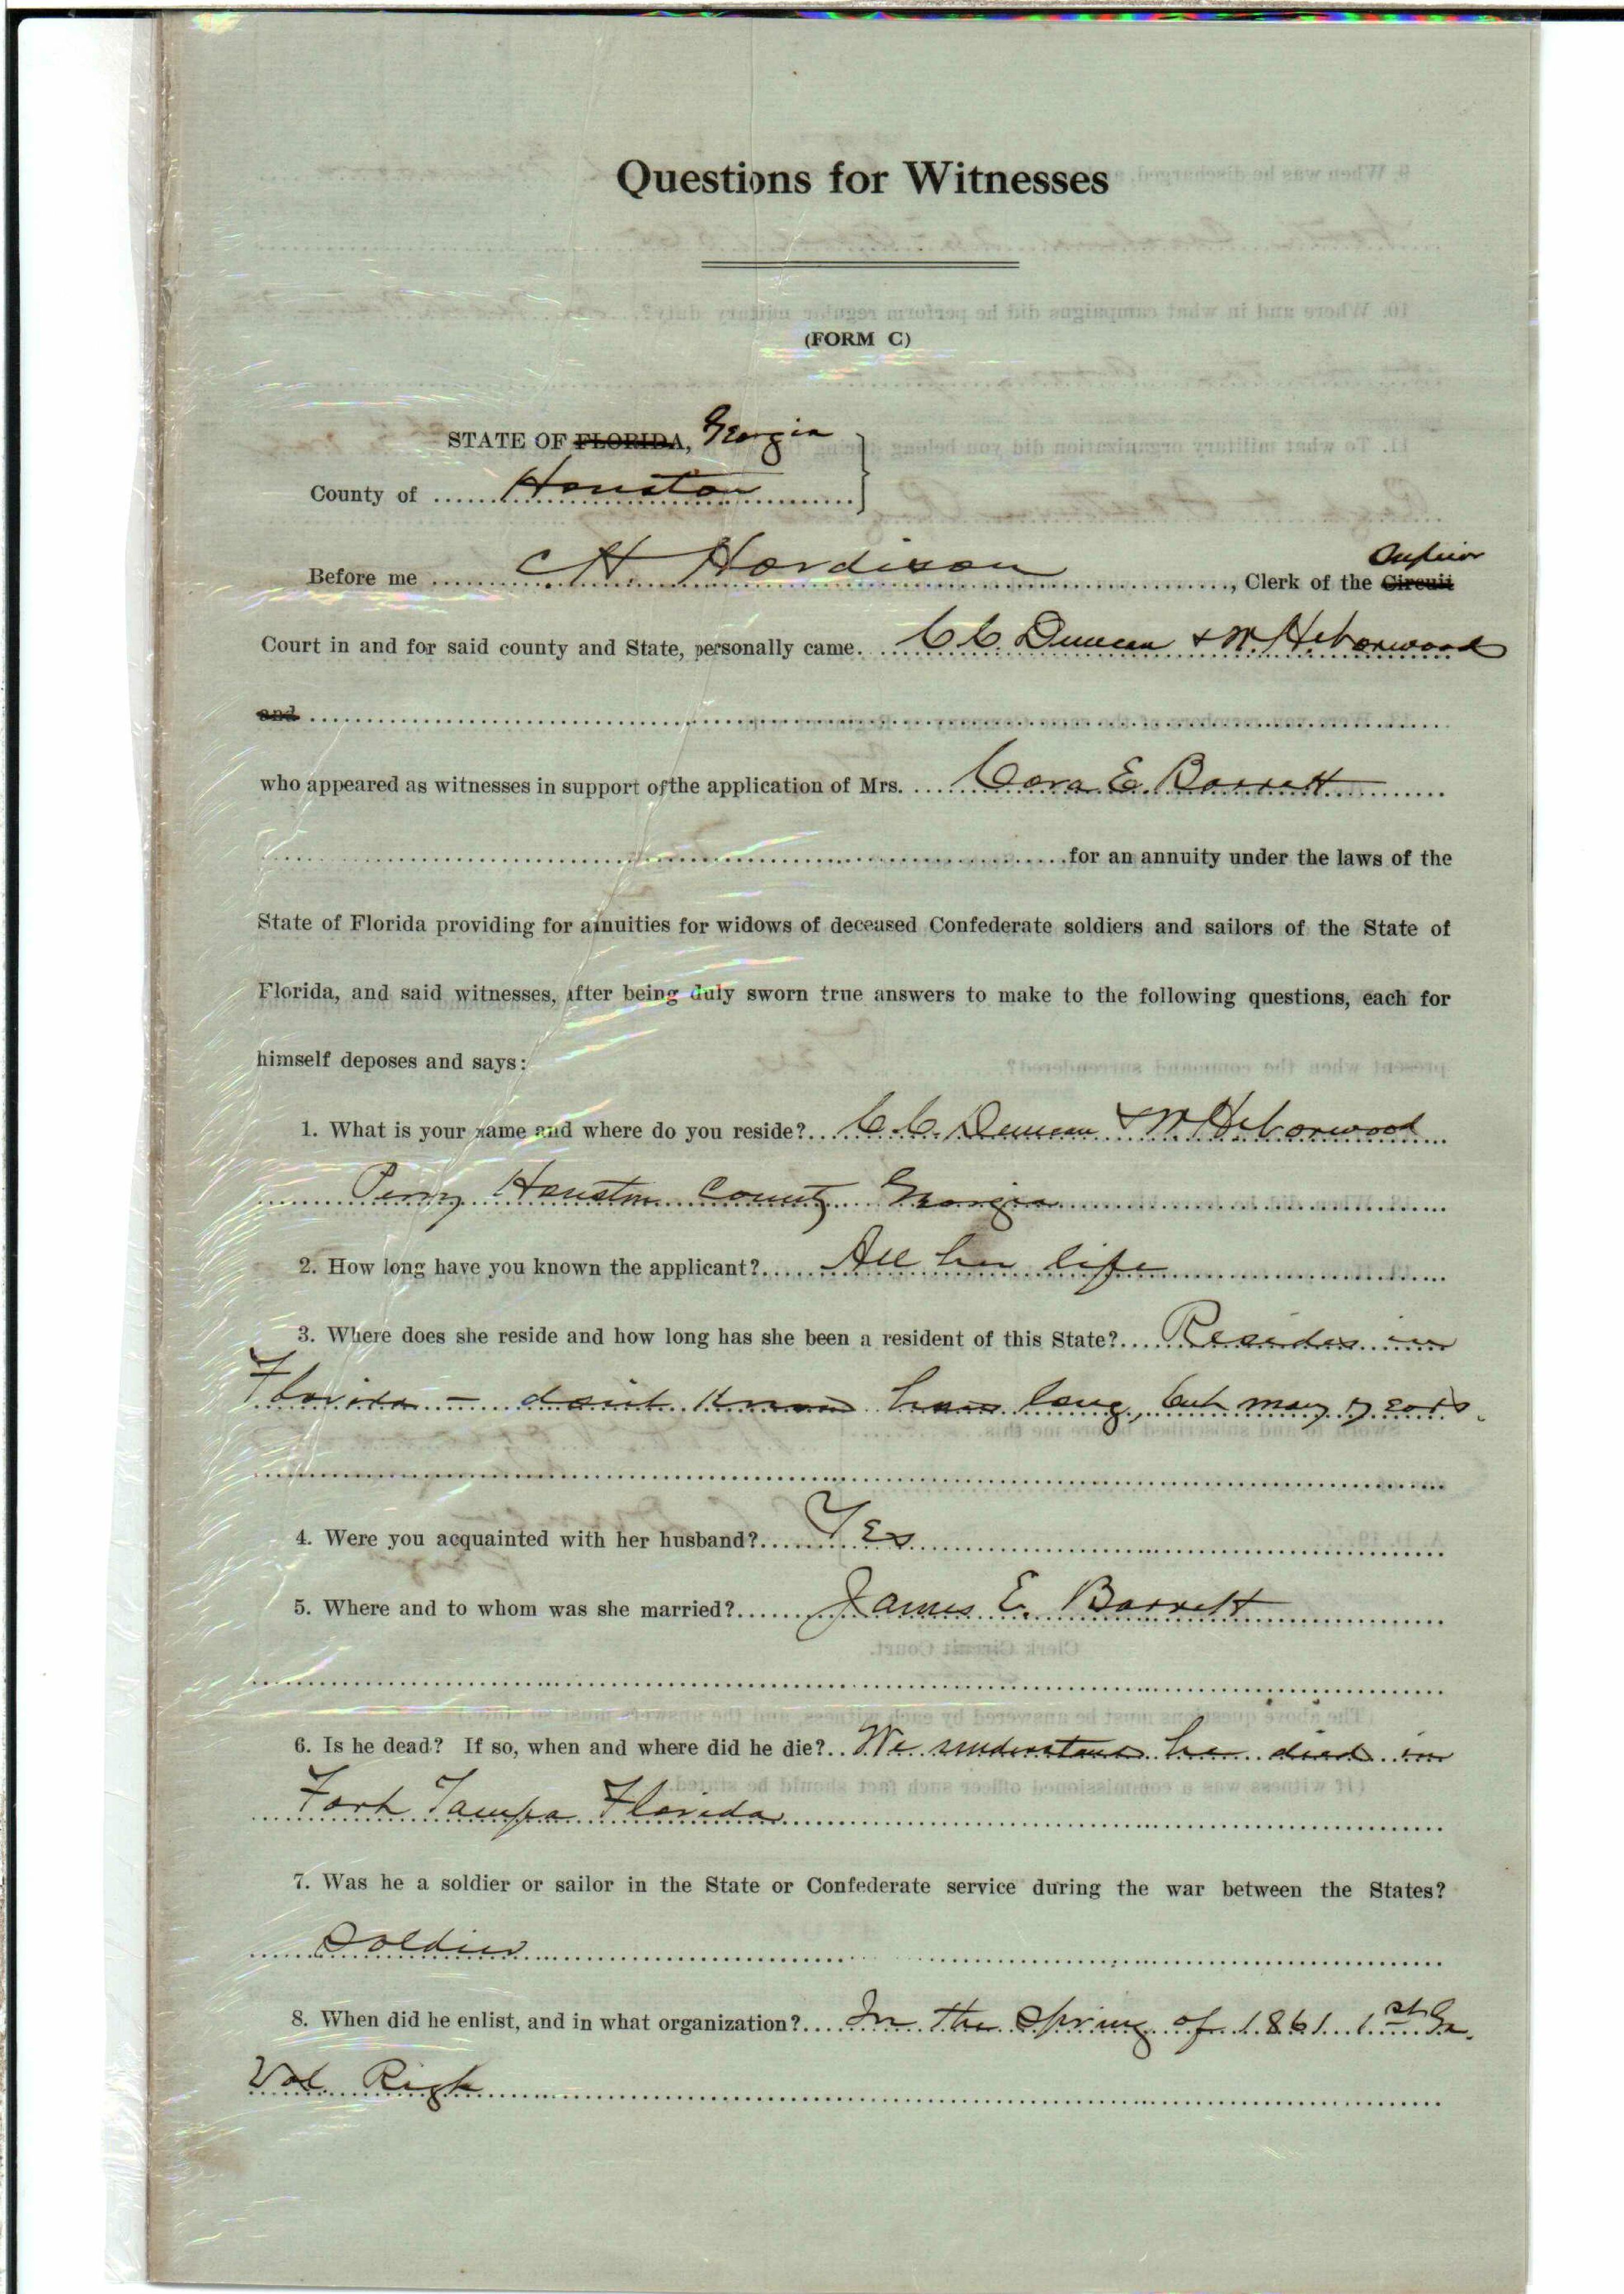 Questions for Witnesses
(FORM C)
STATE OF FLORIDA, Georgia
County of Houston
Before me H Hardison, Clerk of the Circuit Superior
Court in and for said county and State, personally came C C. Duncan & M. H.
and
who appeared as witnesses in support of the application of Mrs. Cora E. Barrett
for an annuity under the laws of the
State of Florida providing for annuities for widows of deceased Confederate soldiers and sailors of the State of
Florida, and said witnesses, after being duly sworn true answers to make to the following questions, each for
himself deposes and says:
1. What is your name and where do you reside? C. C. Duncan & M H
Perry Houston County Georgia
2. How long have you known the applicant? All her life
3. Where does she reside and how long has she been a resident of this State? Resides in
Florida - dont know how long, but many years.
4. Were you acquainted with her husband? Yes
5. Where and to whom was she married? James E. Barrett
6. Is he dead? If so, when and where did he die? We understand he died in
Port Tampa Florida
7. Was he a soldier or sailor in the State or Confederate service during the war between the States?
Soldier
8. When did he enlist, and in what organization? In the Spring of 1861 1st Ga.
Vol. Regt